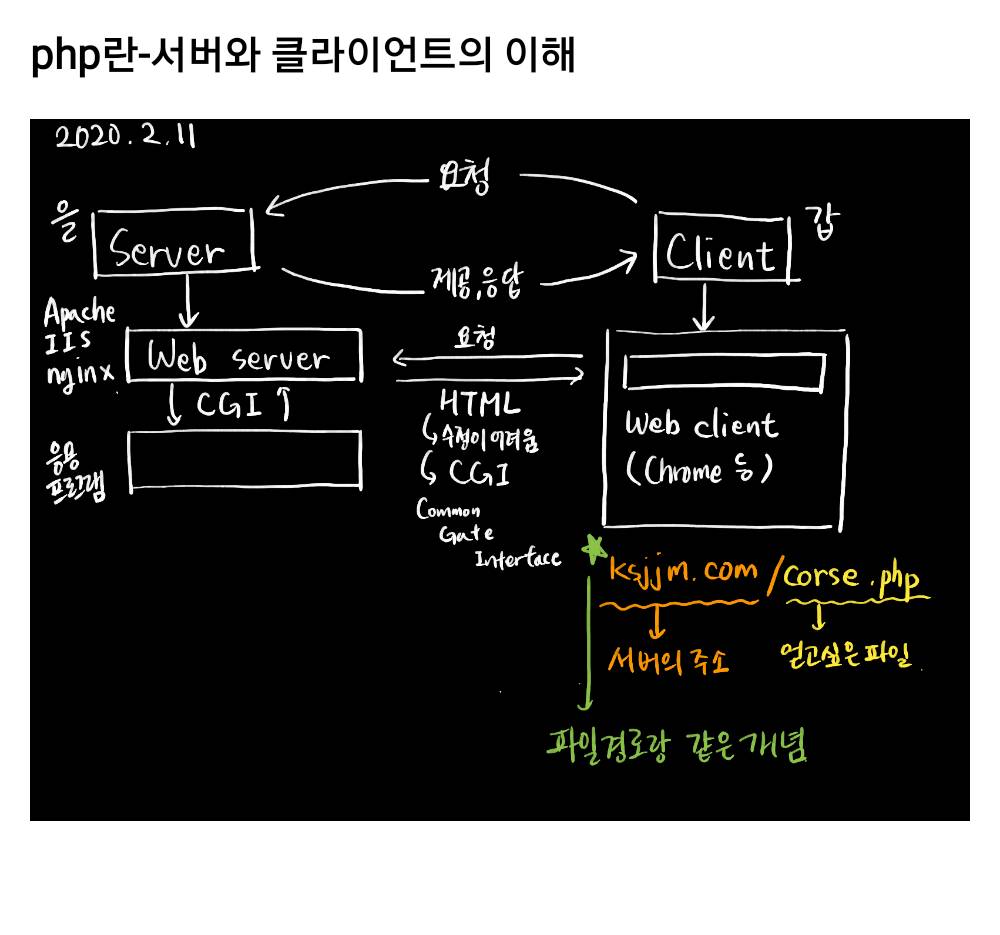 php란-서버와 클라이언트의 이해
2020.2.11
요청
을
Server
Client
갑
제공,응답
Apache
IIS
nginx
Web server
요청
CGI
HTML
수정이 어려움
CGI
Common
Gate
Interface
Web client
(Chrome 등)
응용
프로그램
ksjjm.com/corse.php
서버의 주소
얻고싶은 파일
파일경로랑 같은 개념